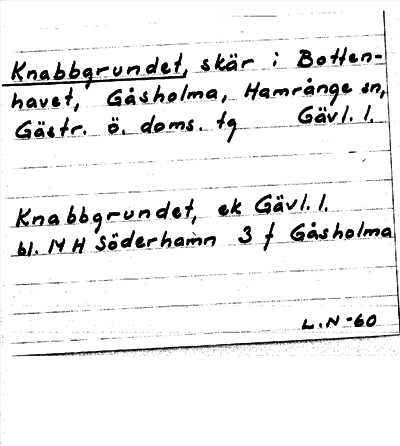 Knabbgrundet, skär i Botten-
havet, Gåsholma, Hamrånge sn,
Gästr. ö. doms. tg Gävl. l.
Knabbgrundet, ek Gävl. l.
bl. 14 H Söderhamn 3 f Gåsholma
L.N-60